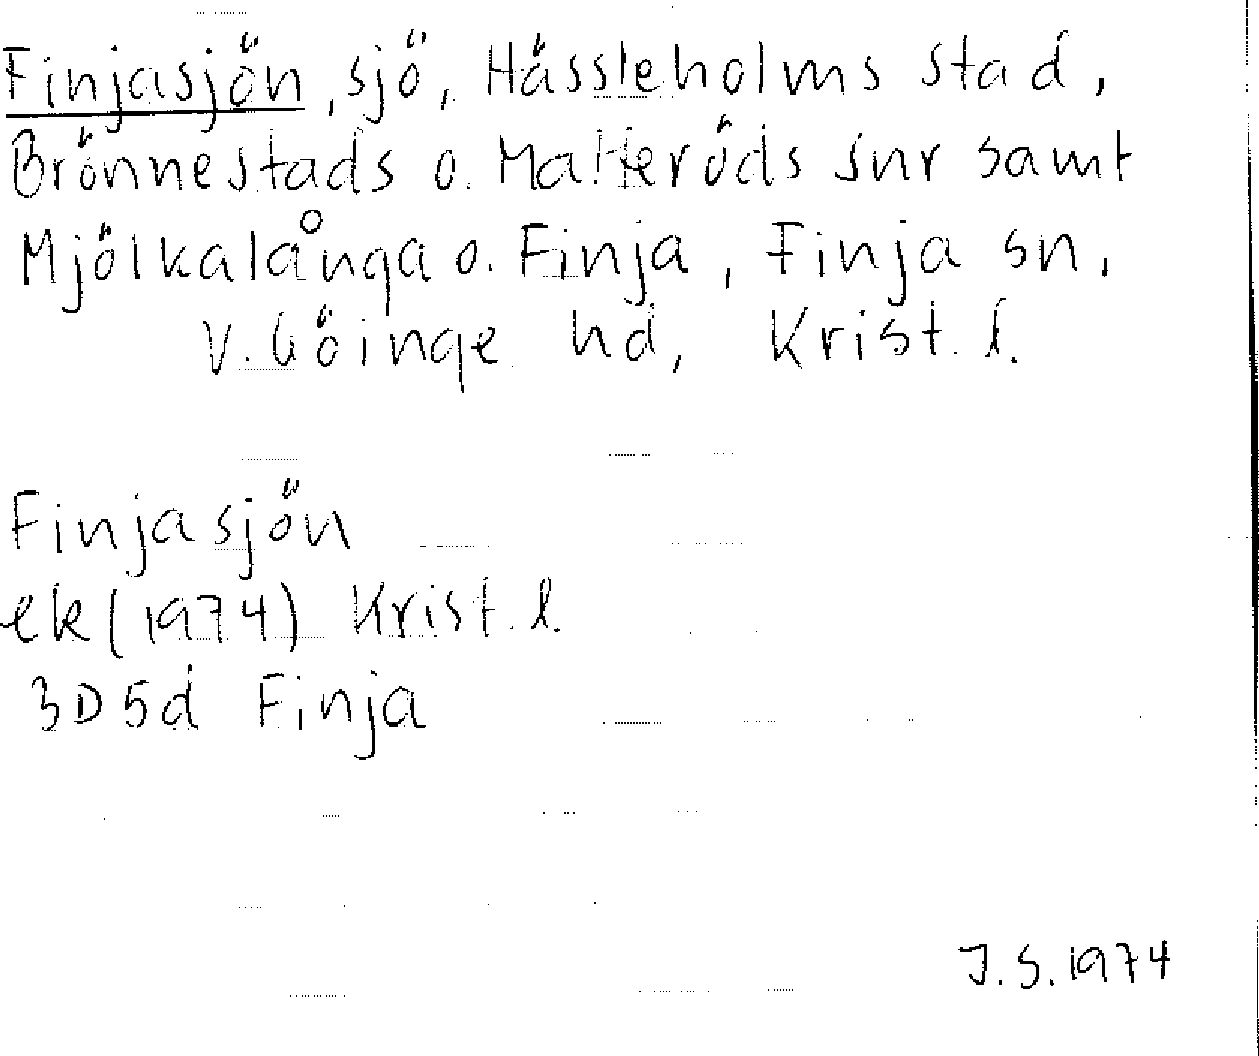 Finjasjön, sjö, Hässleholms stad,
Brönnestads o. Matteröds snr samt
Mjölkalånga o. Finja, Finja sn,
V. Göinge hd, Krist. l.
Finjasjön
ek (1974) Krist. l.
3D5d Finja
J.S. 1974